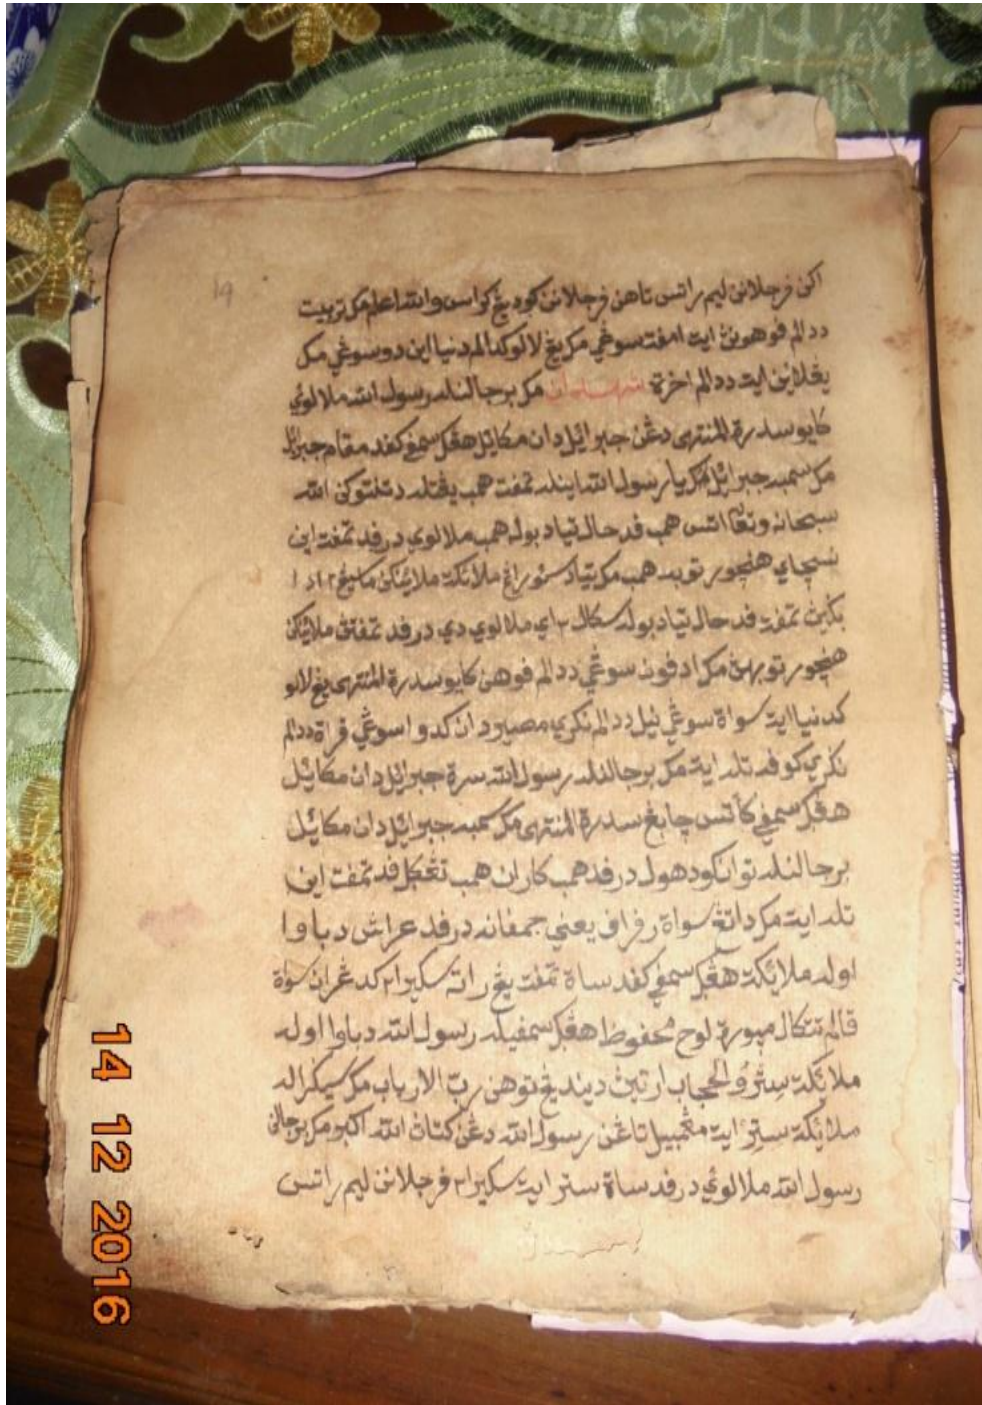 19
اكن فرجلانن ليم راتس تاهن فرجلانن كوديڠ كواسن والله اعلم مك تربيت
ددالم فوهونڽ ايت امفت سوڠي مك يڠ لالو كدالم دنيا اين دو سوڠي مك
يڠ لاين ايت ددالم اخرة شهدان مك برجالنله رسول الله ملالوي
كايو سدرة المنتهى دڠن جبرائيل دان مكائيل هڠڬ سمفي كفد مقام جبرائيل
مك سمبه جبرائيل مك يا رسول الله اينله تمفت همب يڠ تله دتنتوكن الله
سبحانه وتعالى اتس همب فد حال تياد بوله همب ملالوي درفد تمفت اين
نسچاي هنچور توبه همب مك تياد سئورڠ ملائكة ملاينكن ماسيڠ٢ اد
بڬين تمفت فد حال تياد بوله سكال٢ اي ملالوي دي درفد تمفتڽ ملاينكن
هنچور توبهڽ مك ادفون سوڠي ددالم فوهن كايو سدرة المنتهى يڠ لالو
كدنيا ايت سواة سوڠي نيل ددالم نڬري مصير دان كدوا سوڠي فراة ددالم
نڬري كوفه تله ايت مك برجالنله رسول الله سرة جبرائيل دان مكائيل
هڠڬ سمفي كأتس چابڠ سدرة المنتهى مك سمبه جبرائيل دان مكائيل
برجالنله توانكو دهولو درفد همب كارن همب تڠڬل فد تمفت اين
تله ايت مك داتڠ سواة رفراف يعني جمفانه درفد عراش دباوا
اوله ملائكة هڠڬ سمفي كفد ساة تمفت يڠ راته سكيرا٢ كدڠران سواة
قالم تتكال مپورة لوح محفوظ هڠڬ سمفيله رسول الله دباوا اوله
ملائكة ستر والحجاب ارتين دينديڠ توهن رب الارباب مك سيڬراله
ملائكة ستر ايت مڠمبيل تاڠن رسول الله دڠن كتان الله اكبر مك برجالن
رسول الله ملالوي درفد ساة ستر ايت سكيرا٢ فرجلانن ليم راتس
14 12 2016